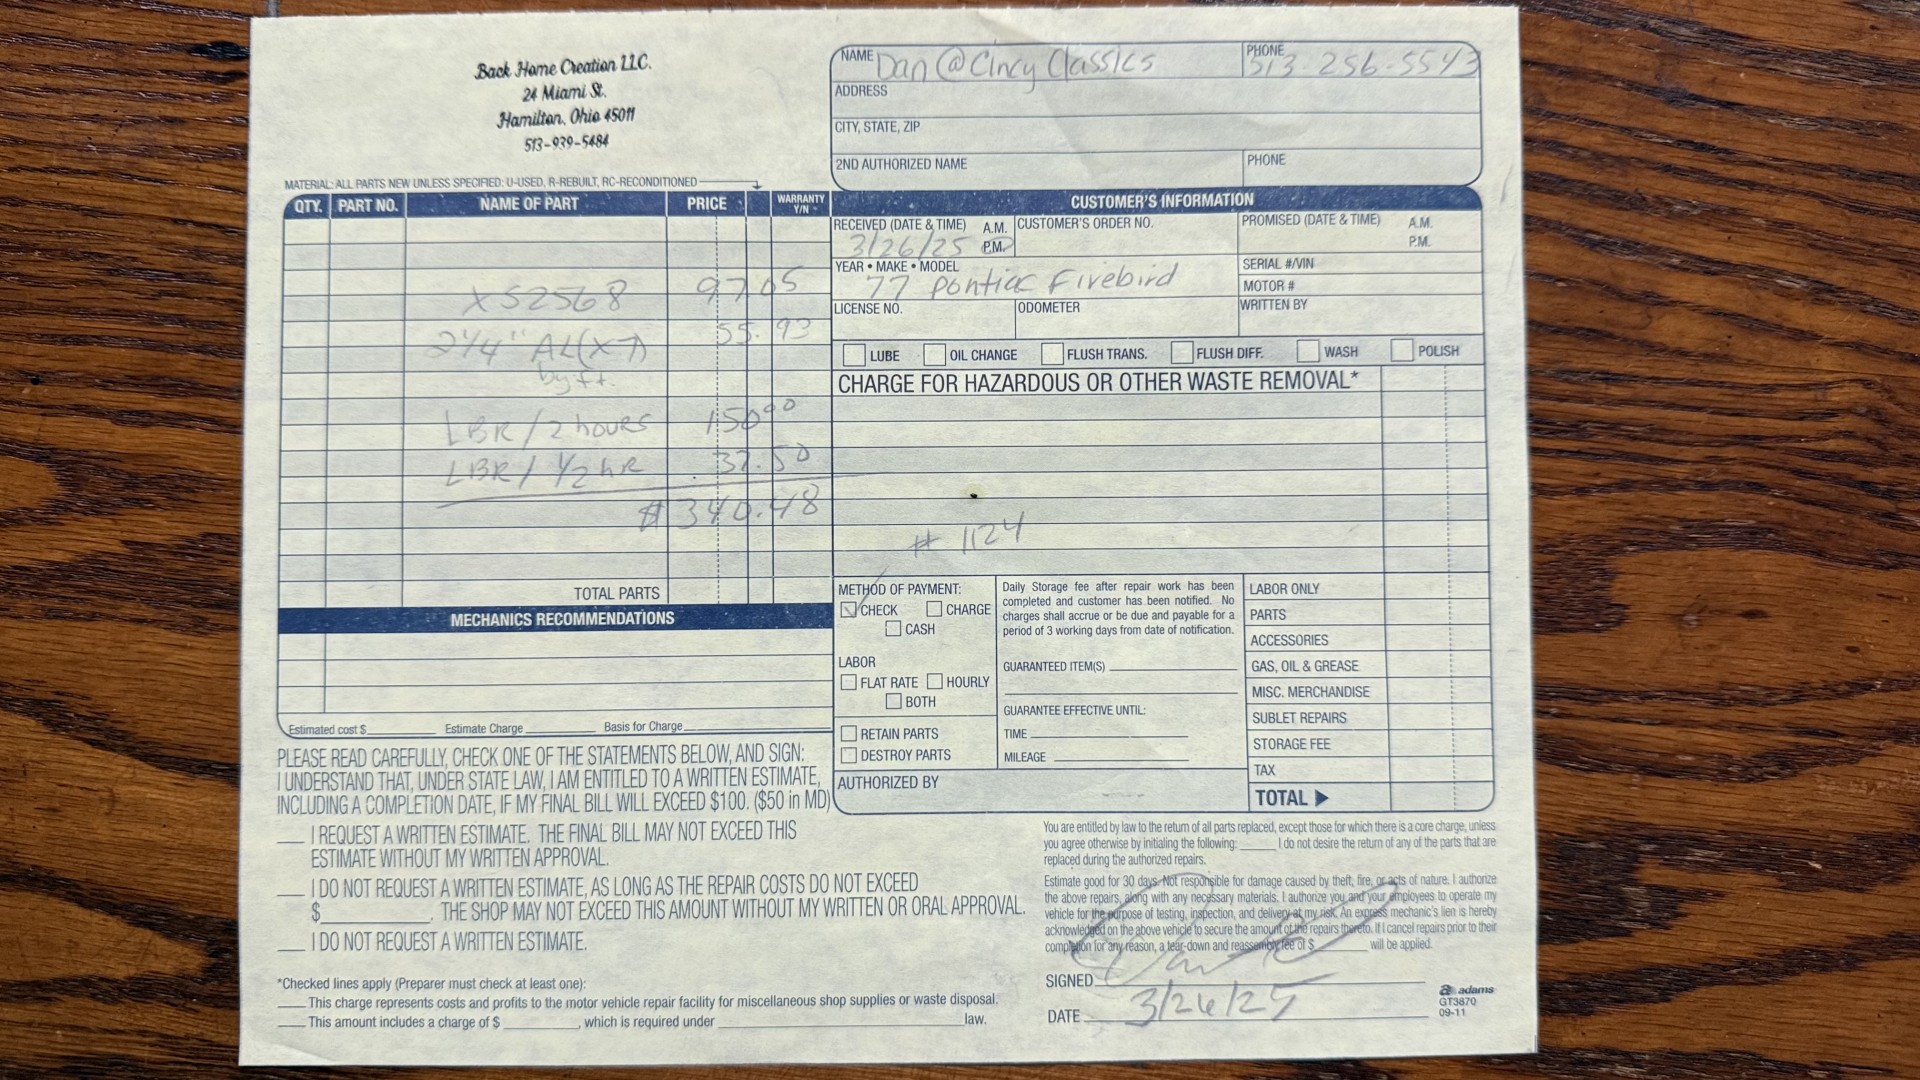 Back Home Creation LLC.
24 Miami St.
Hamilton, Ohio 45011
513-939-5484
NAME Dan @ Cincy Classics
PHONE 513-256-5543
ADDRESS
CITY, STATE, ZIP
2ND AUTHORIZED NAME
PHONE
MATERIAL: ALL PARTS NEW UNLESS SPECIFIED: U-USED, R-REBUILT, RC-RECONDITIONED
QTY. PART NO. NAME OF PART PRICE WARRANTY Y/N
X52568 97.05
2 1/4" AL (x7) 55.93
by ft.
LBR / 2 hours 150.00
LBR / 1/2 hR 37.50
$ 340.48
TOTAL PARTS
MECHANICS RECOMMENDATIONS
Estimated cost $ Estimate Charge Basis for Charge
CUSTOMER'S INFORMATION
RECEIVED (DATE & TIME) A.M. P.M. 3/26/25
CUSTOMER'S ORDER NO.
PROMISED (DATE & TIME) A.M. P.M.
YEAR • MAKE • MODEL 77 Pontiac Firebird
SERIAL #/VIN
MOTOR #
LICENSE NO. ODOMETER WRITTEN BY
LUBE OIL CHANGE FLUSH TRANS. FLUSH DIFF. WASH POLISH
CHARGE FOR HAZARDOUS OR OTHER WASTE REMOVAL*
# 1124
METHOD OF PAYMENT:
CHECK CHARGE
CASH
LABOR
FLAT RATE HOURLY
BOTH
RETAIN PARTS
DESTROY PARTS
AUTHORIZED BY
Daily Storage fee after repair work has been
completed and customer has been notified. No
charges shall accrue or be due and payable for a
period of 3 working days from date of notification.
GUARANTEED ITEM(S)
GUARANTEE EFFECTIVE UNTIL:
TIME
MILEAGE
LABOR ONLY
PARTS
ACCESSORIES
GAS, OIL & GREASE
MISC. MERCHANDISE
SUBLET REPAIRS
STORAGE FEE
TAX
TOTAL
PLEASE READ CAREFULLY, CHECK ONE OF THE STATEMENTS BELOW, AND SIGN:
I UNDERSTAND THAT, UNDER STATE LAW, I AM ENTITLED TO A WRITTEN ESTIMATE,
INCLUDING A COMPLETION DATE, IF MY FINAL BILL WILL EXCEED $100. ($50 in MD)
I REQUEST A WRITTEN ESTIMATE. THE FINAL BILL MAY NOT EXCEED THIS
ESTIMATE WITHOUT MY WRITTEN APPROVAL.
I DO NOT REQUEST A WRITTEN ESTIMATE, AS LONG AS THE REPAIR COSTS DO NOT EXCEED
$ . THE SHOP MAY NOT EXCEED THIS AMOUNT WITHOUT MY WRITTEN OR ORAL APPROVAL.
I DO NOT REQUEST A WRITTEN ESTIMATE.
*Checked lines apply (Preparer must check at least one):
This charge represents costs and profits to the motor vehicle repair facility for miscellaneous shop supplies or waste disposal.
This amount includes a charge of $ , which is required under law.
You are entitled by law to the return of all parts replaced, except those for which there is a core charge, unless
you agree otherwise by initialing the following: I do not desire the return of any of the parts that are
replaced during the authorized repairs.
Estimate good for 30 days. Not responsible for damage caused by theft, fire, or acts of nature. I authorize
the above repairs, along with any necessary materials. I authorize you and your employees to operate my
vehicle for the purpose of testing, inspection, and delivery at my risk. An express mechanic's lien is hereby
acknowledged on the above vehicle to secure the amount of the repairs thereto. If I cancel repairs prior to their
completion for any reason, a tear-down and reassembly fee of $ will be applied.
SIGNED
DATE 3/26/25
adams
GT3870
09-11